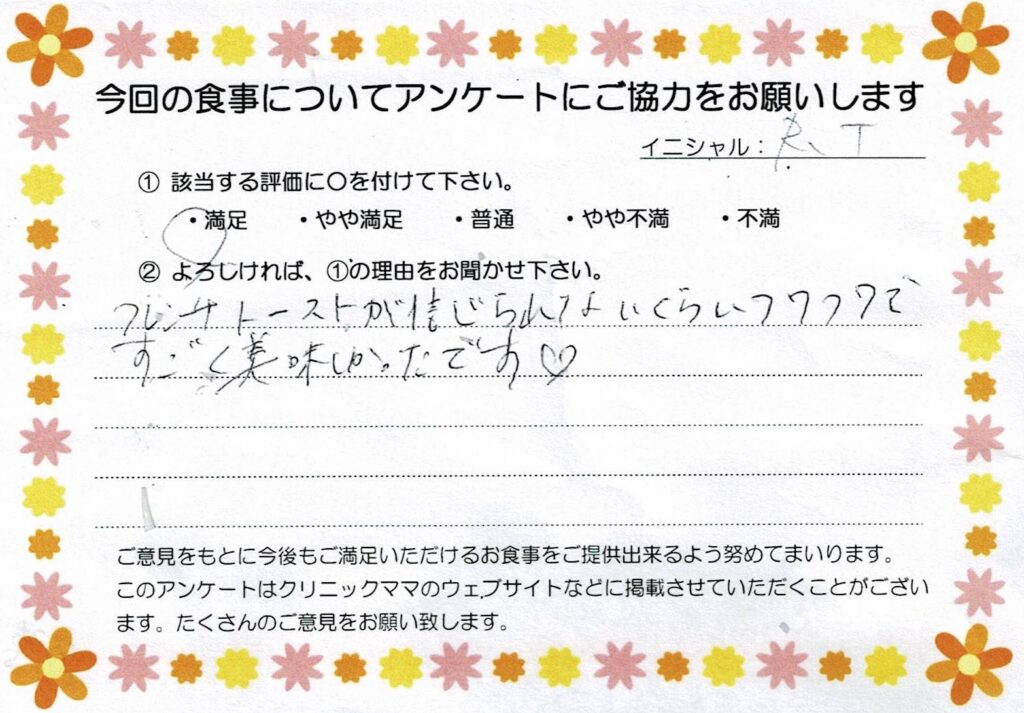 今回の食事についてアンケートにご協力をお願いします
イニシャル：R、T
① 該当する評価に〇を付けて下さい。
・満足　・やや満足　・普通　・やや不満　・不満
② よろしければ、①の理由をお聞かせ下さい。
フレンチトーストが信じられないくらいフワフワで
すごく美味しかったです♡
ご意見をもとに今後もご満足いただけるお食事をご提供出来るよう努めてまいります。
このアンケートはクリニックママのウェブサイトなどに掲載させていただくことがござい
ます。たくさんのご意見をお願い致します。